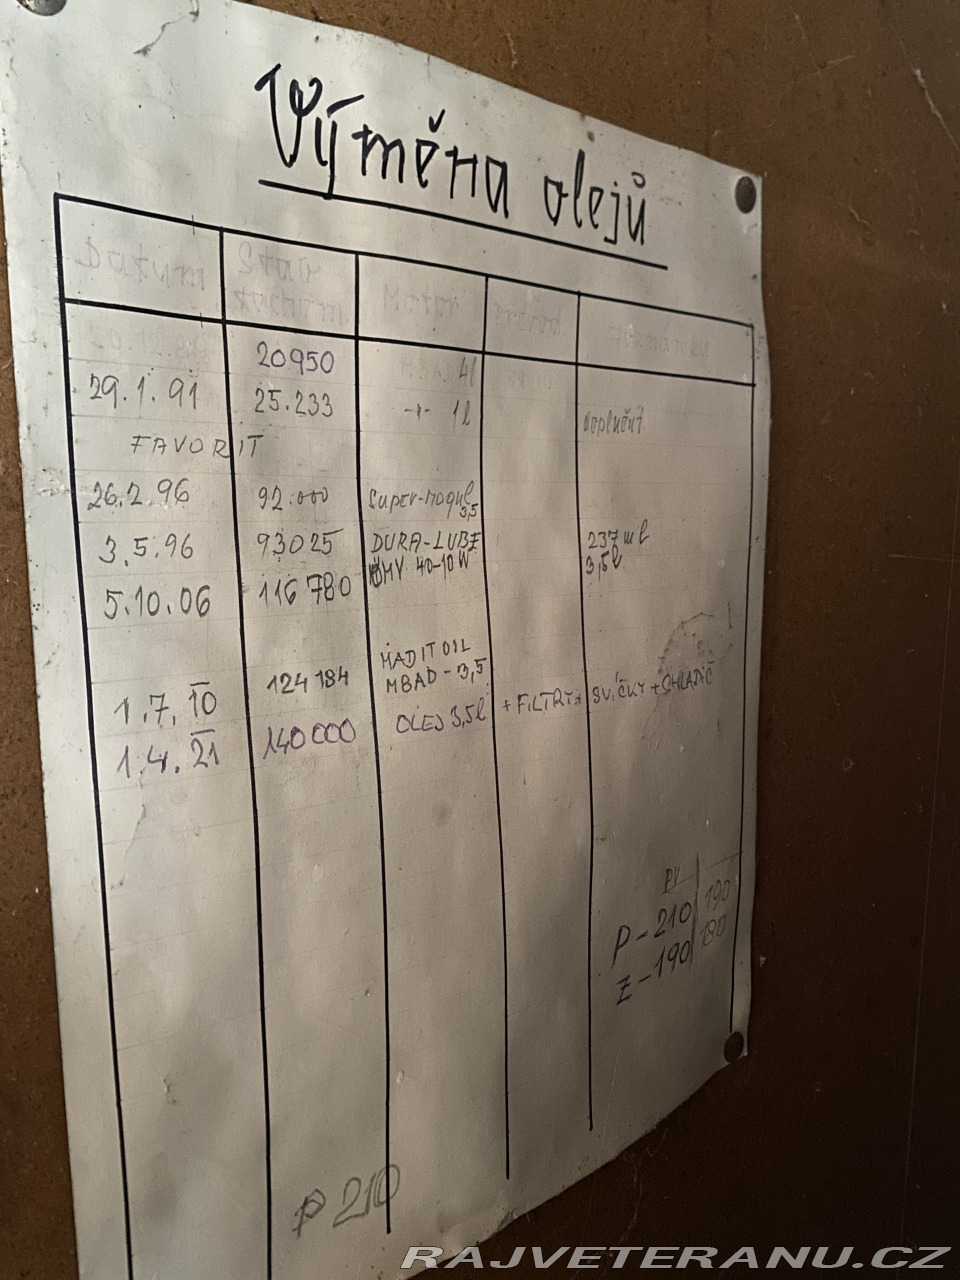 Výměna olejů
Datum Stav tachom. Motor
20950 4l
29.1.91 25.233 -"- 1l doplnění
FAVORIT
26.2.96 92.000 Super-moqul 3,5
3.5.96 93025 DURA-LUBE 237 ml
5.10.06 116 780 ÖMV 40-10W 3,5l
1.7.10 124 184 MADIT OIL M8AD-3,5
1.4.21 140 000 OLEJ 3,5l + FILTRY + SVÍČKY + CHLADIČ
PV
P-210 190
Z-190 180
P 210
RAJVETERANU.CZ